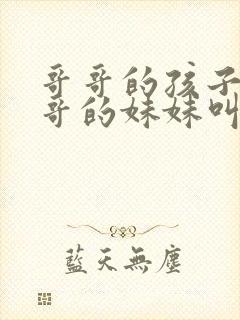 哥哥的孩子
哥的妹妹叫
藍天無塵